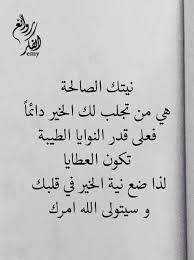 روائع
الفكر
emy
نيتك الصالحة
هي من تجلب لك الخير دائماً
فعلى قدر النوايا الطيبة
تكون العطايا
لذا ضع نية الخير في قلبك
و سيتولى الله امرك